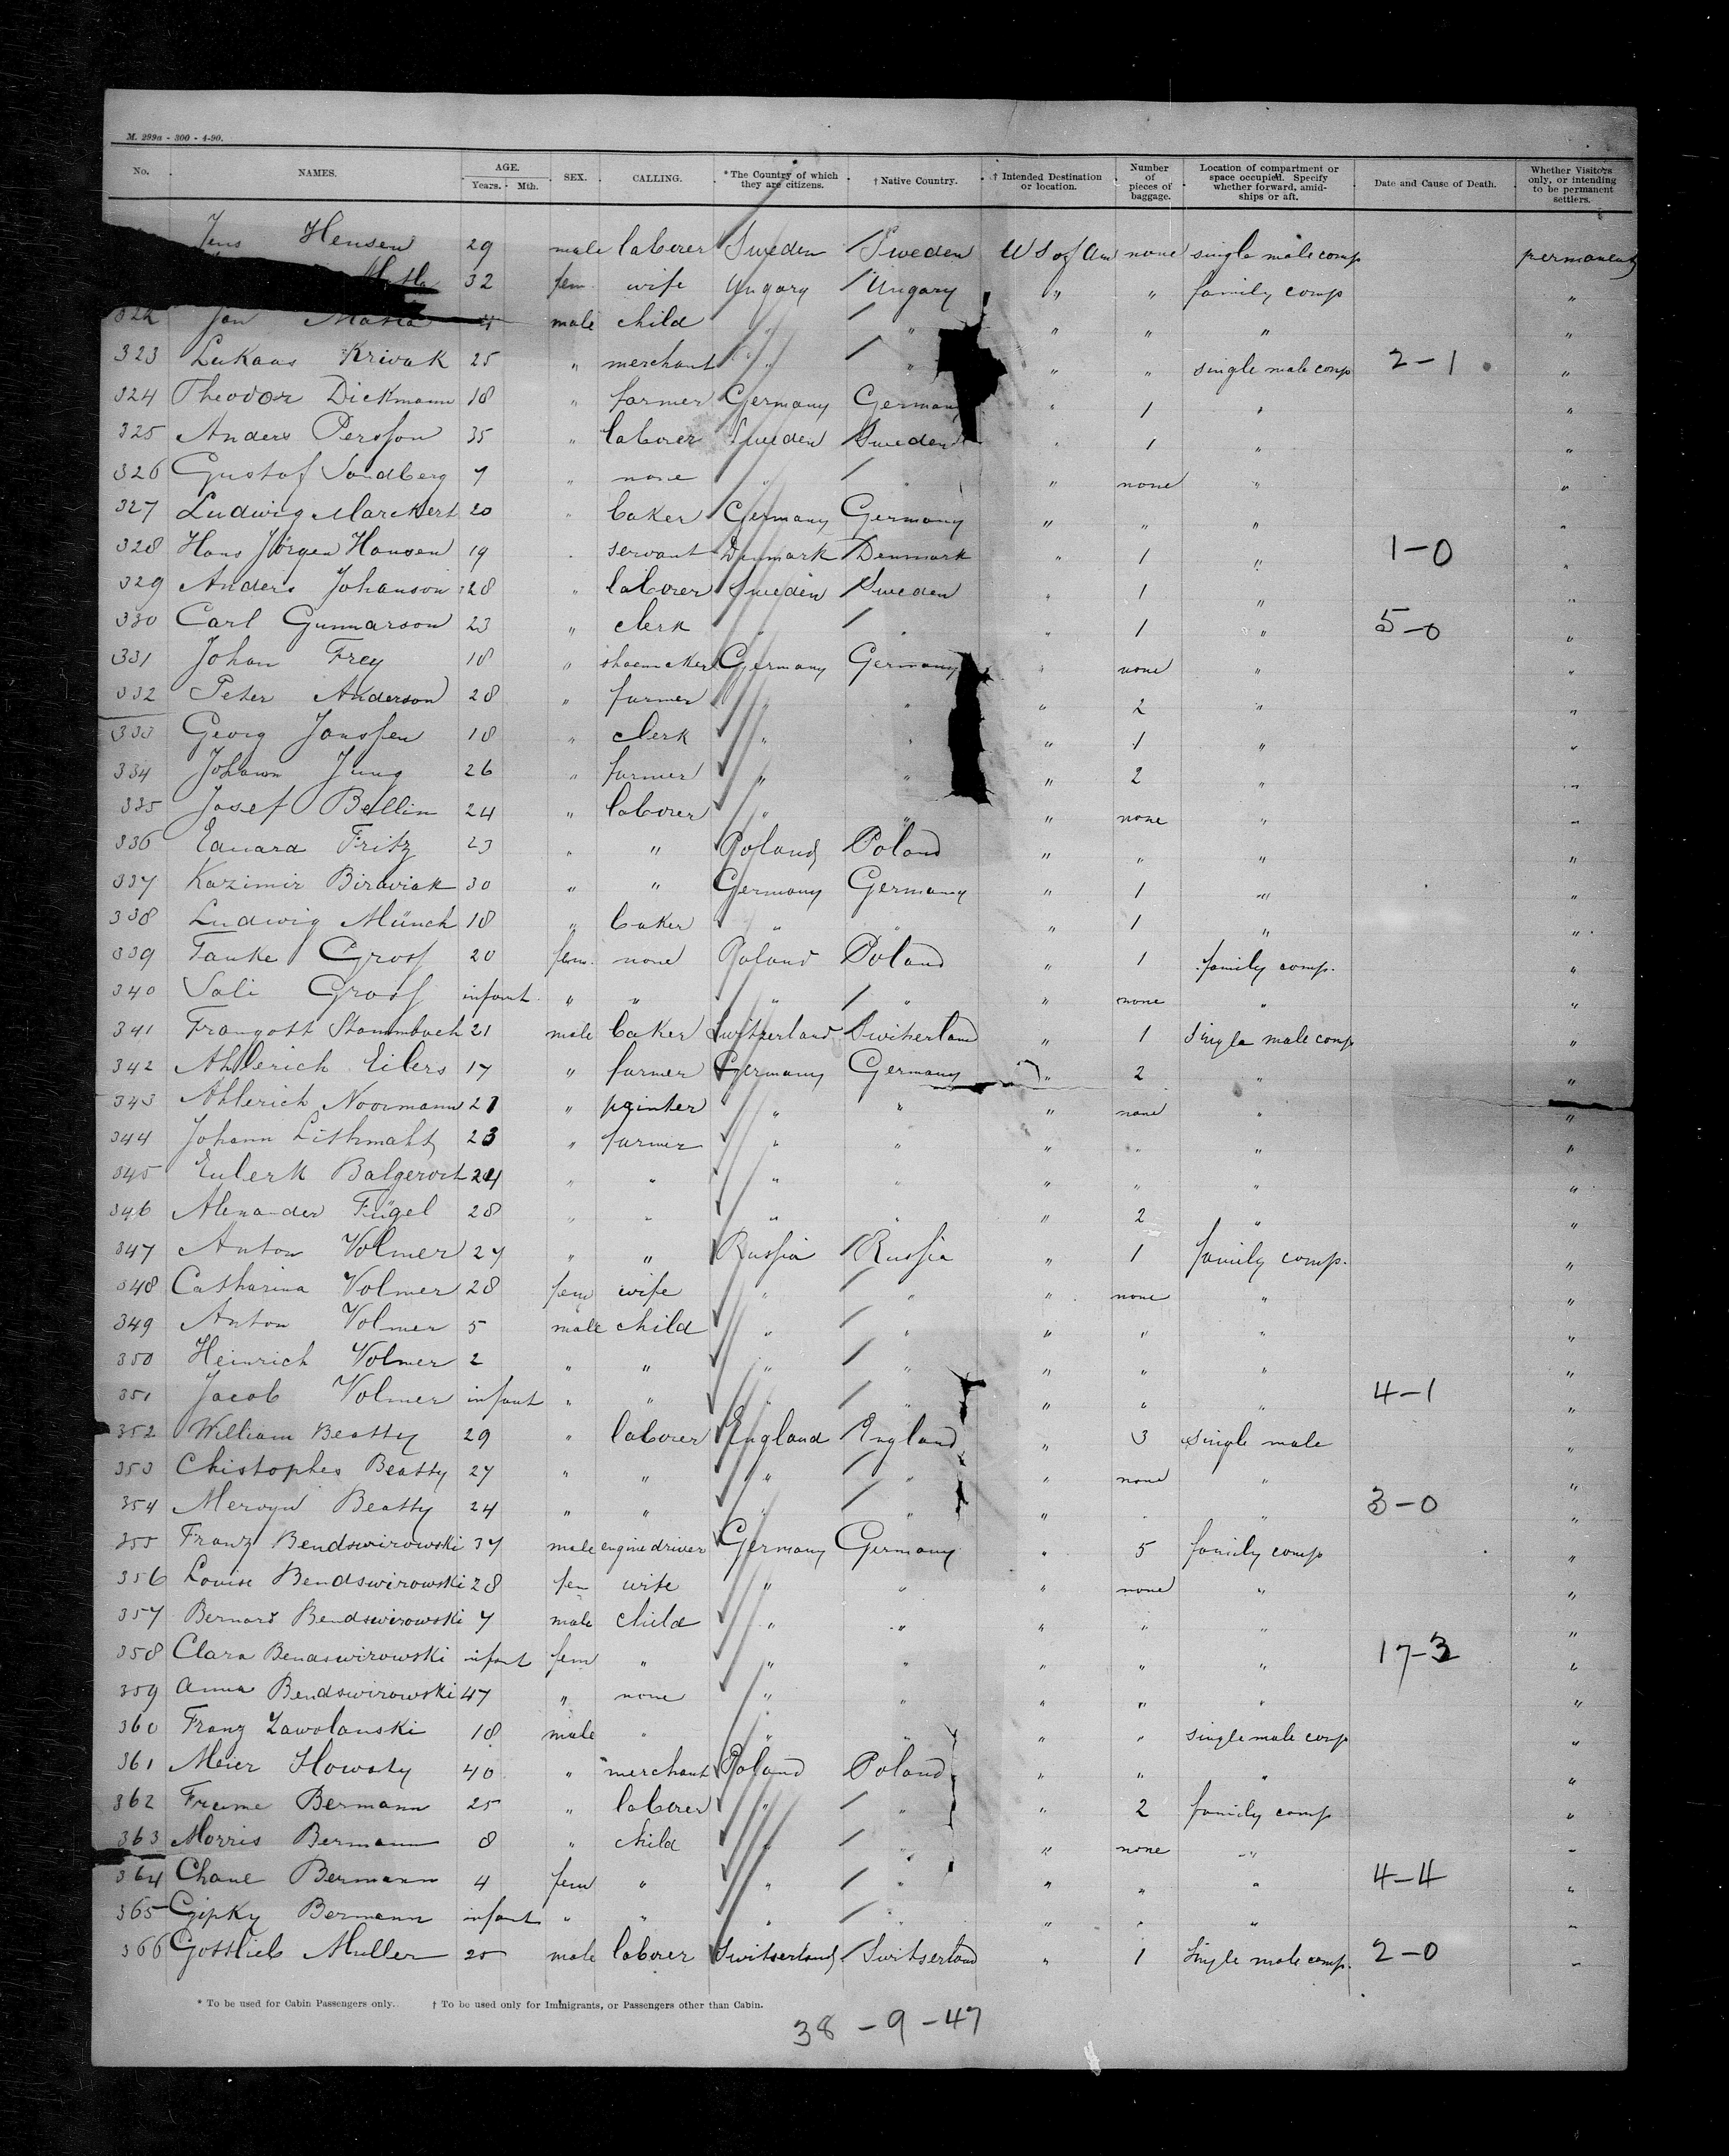 M. 299a - 300 - 4-90.
No. NAMES. AGE. Years. Mth. SEX. CALLING. *The Country of which they are citizens. †Native Country. †Intended Destination or location. Number of pieces of baggage. Location of compartment or space occupied. Specify whether forward, amidships or aft. Date and Cause of Death. Whether Visitors only, or intending to be permanent settlers.
Jens Hensen 29 male laborer Sweden Sweden U S of Am none single male comp permanent
32 fem. wife Ungary Ungary " " family comp "
322 Jan 4 male child " " " " " "
323 Lukaas Krivak 25 " merchant " " " " single male comp 2-1 "
324 Theodor Dickmann 18 " farmer Germany Germany " 1 " "
325 Anders Persson 35 " laborer Sweden Sweden " 1 " "
326 Gustof Sandberg 7 " none " " " none " "
327 Ludwig Marckert 20 " baker Germany Germany " " " "
328 Hans Jörgen Hansen 19 " servant Denmark Denmark " 1 " 1-0 "
329 Anders Johanson 28 " laborer Sweden Sweden " 1 " "
330 Carl Gunnarson 23 " clerk " " " 1 " 5-0 "
331 Johan Frey 18 " shoemaker Germany Germany " none " "
332 Peter Anderson 28 " farmer " " " 2 " "
333 Georg Janssen 18 " clerk " " " 1 " "
334 Johann Jung 26 " farmer " " " 2 " "
335 Josef Bellin 24 " laborer " " " none " "
336 Eduard Fritz 23 " " Poland Poland " " " "
337 Kazimir Biraviak 30 " " Germany Germany " 1 " "
338 Ludwig Münch 18 " baker " " " 1 " "
339 Tauke Gross 20 fem. none Poland Poland " 1 family comp. "
340 Sali Gross infant " " " " " none " "
341 Fraugott Stammbach 21 male baker Switzerland Switzerland " 1 single male comp "
342 Ahlerich Eilers 17 " farmer Germany Germany " 2 " "
343 Ahlerich Noormann 21 " painter " " " none " "
344 Johann 23 " farmer " " " " " "
345 Eulerk 24 " " " " " " " "
346 Alexander Fügel 28 " " " " " 2 " "
347 Anton Volmer 27 " " Russia Russia " 1 family comp. "
348 Catharina Volmer 28 fem wife " " " none " "
349 Anton Volmer 5 male child " " " " " "
350 Heinrich Volmer 2 " " " " " " " "
351 Jacob Volmer infant " " " " " " " 4-1 "
352 William Beatty 29 " laborer England England " 3 single male "
353 Chistophes Beatty 27 " " " " " none " "
354 Mervyn Beatty 24 " " " " " " " 3-0 "
355 Franz Bendswirowski 37 male engine driver Germany Germany " 5 family comp "
356 Louise Bendswirowski 28 fem wife " " " none " "
357 Bernard Bendswirowski 7 male child " " " " " "
358 Clara Bendswirowski infant fem " " " " " " 17-3 "
359 Anna Bendswirowski 47 " none " " " " " "
360 Franz Zawolanski 18 male " " " " " single male comp "
361 Meier Howaty 40 " merchant Poland Poland " " " "
362 Freume Bermann 25 " laborer " " " 2 family comp "
363 Morris Bermann 8 " child " " " none " "
364 Chane Bermann 4 fem " " " " " " 4-4 "
365 Gipky Bermann infant " " " " " " " "
366 Gottlieb Muller 25 male laborer Switserland Switserland " 1 single male comp. 2-0 "
* To be used for Cabin Passengers only. † To be used only for Immigrants, or Passengers other than Cabin.
38 - 9 - 47